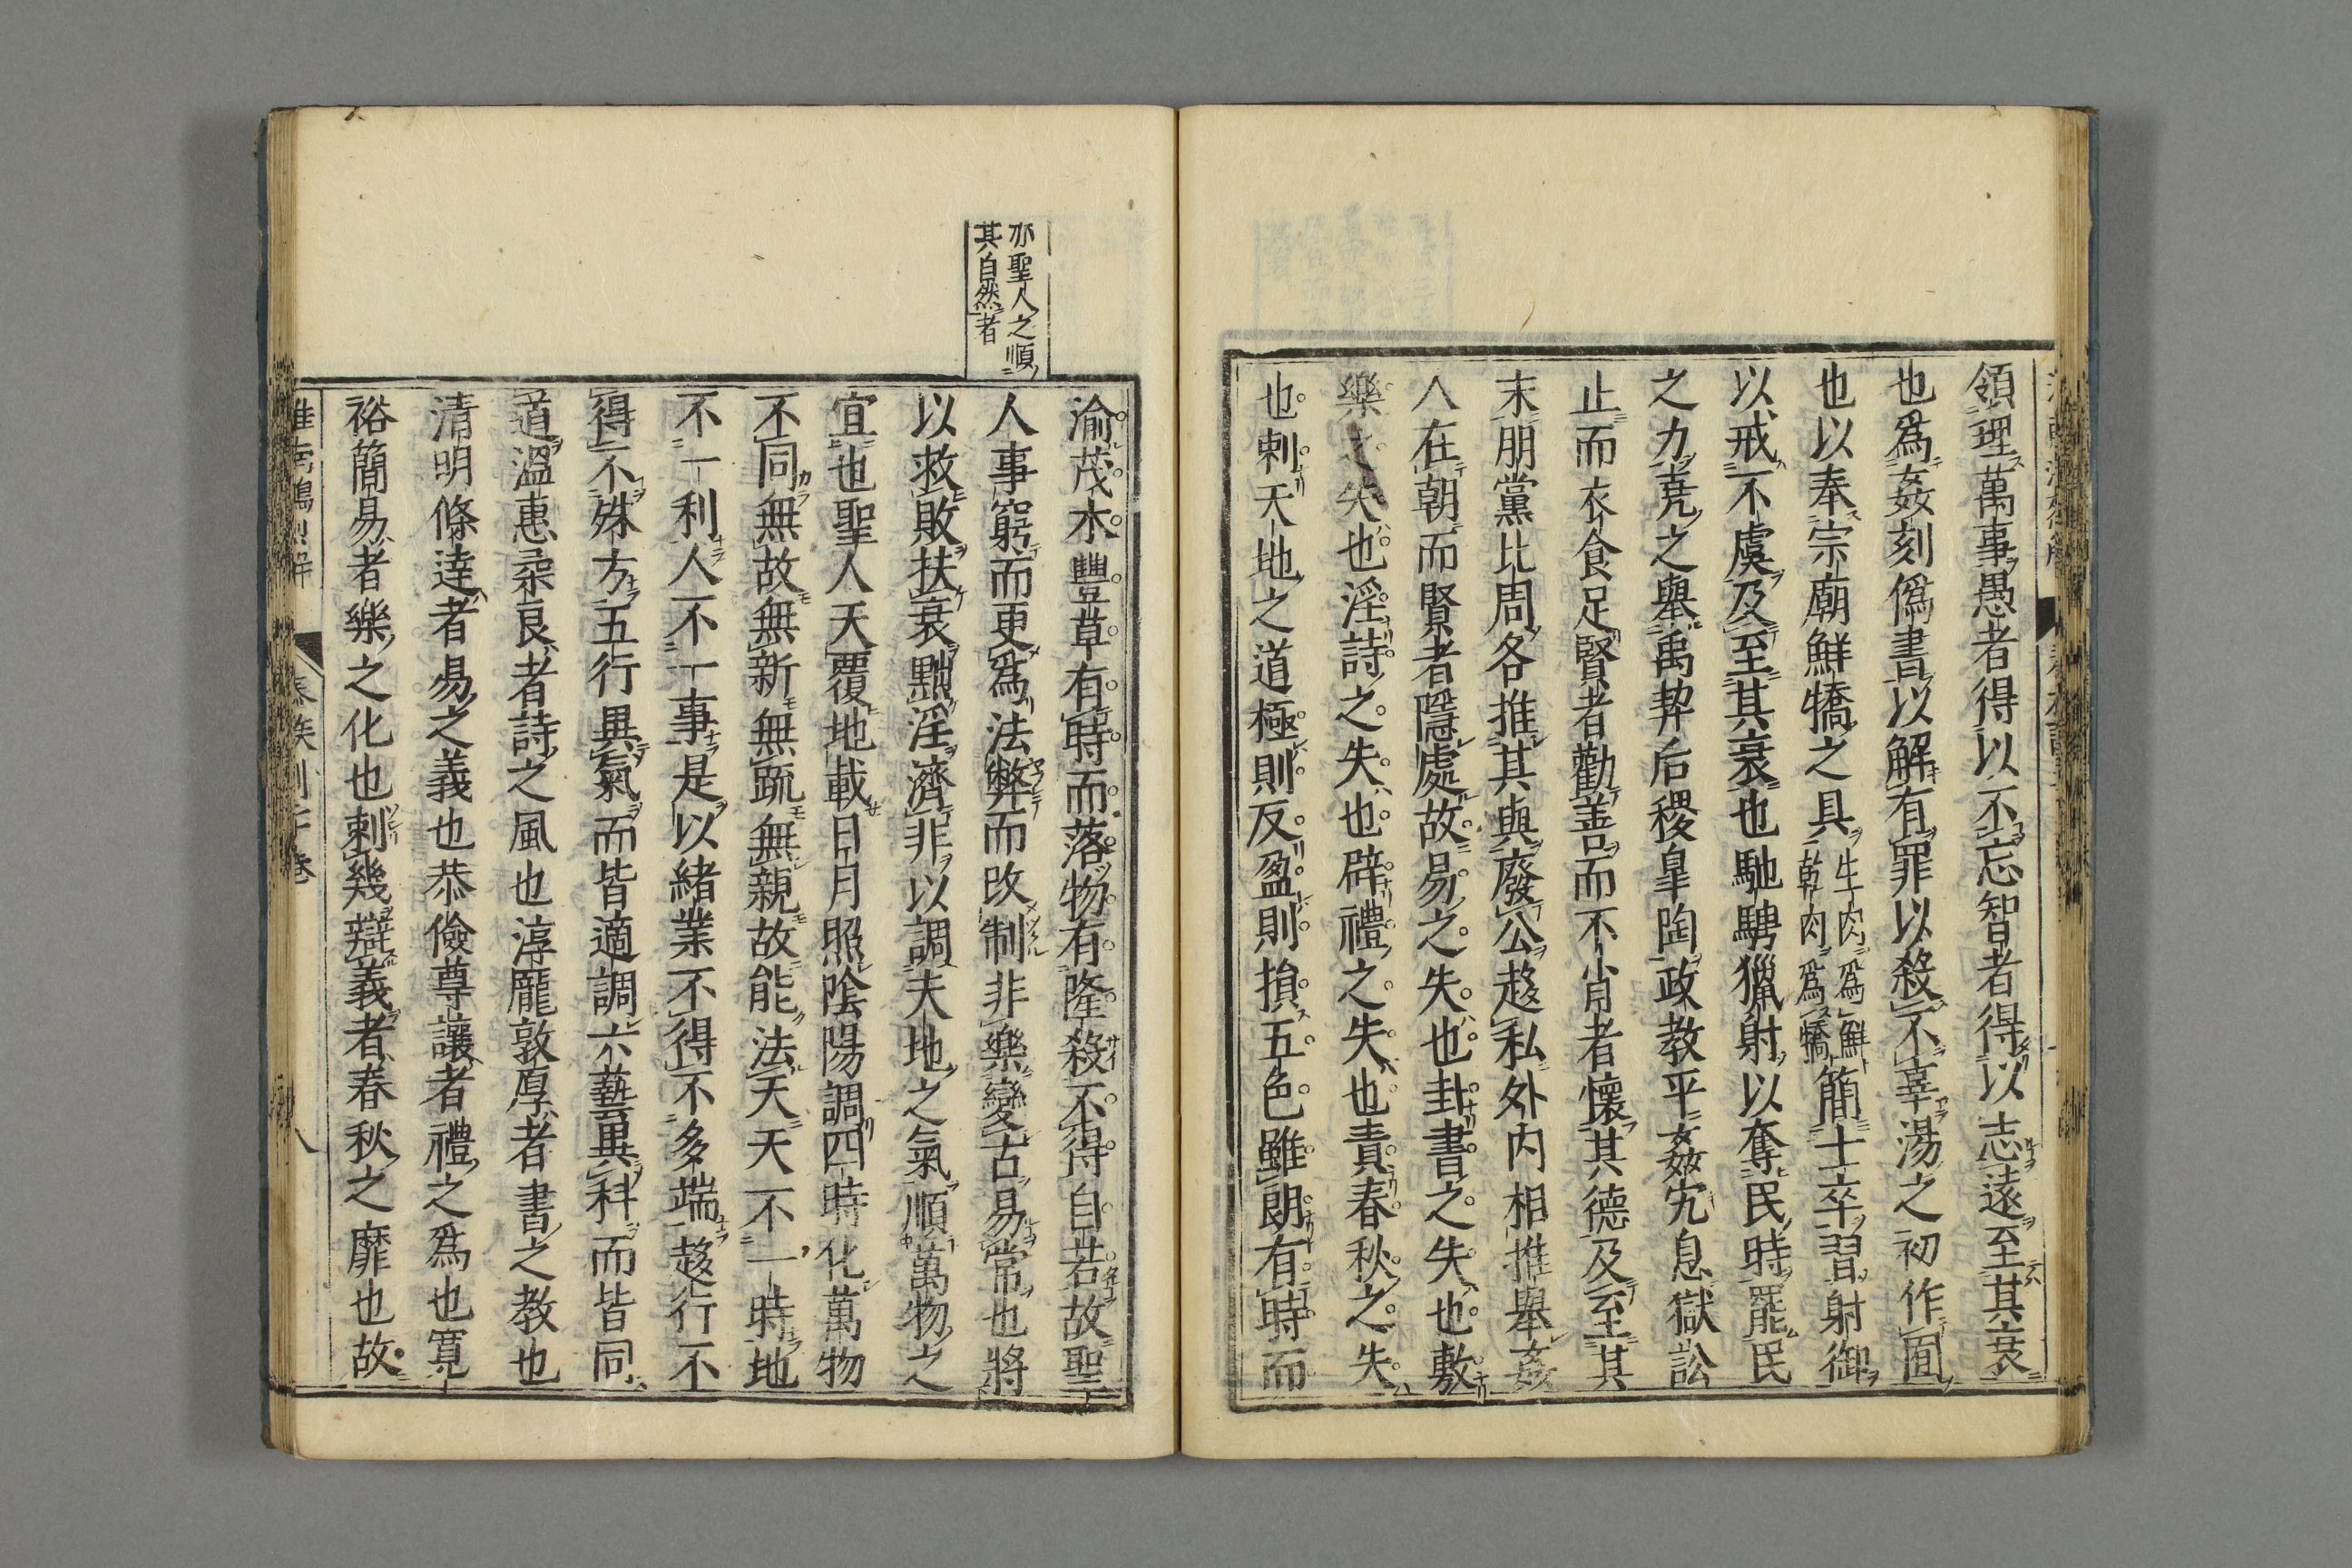 領理萬事愚者得以不忘智者得以志遠至其衰
也爲姦刻僞書以解有罪以殺不辜湯之初作囿
也以奉宗廟鮮犞之具生肉爲鮮乾肉爲犞簡士卒習射御
以戒不虞及至其衰也馳騁獵射以奪民時罷民
之力堯之舉禹契后稷皐陶政教平姦宄息獄訟
止而衣食足賢者勸善而不肖者懷其德及至其
末朋黨比周各推其與廢公趍私外内相推舉姦
人在朝而賢者隱處故易之失也卦書之失也敷
樂之失也淫詩之失也辟禮之失也責春秋之失
也刺天地之道極則反盈則損五色雖朗有時而
亦聖人之順
其自然者
渝茂木豐草有時而落物有隆殺不得自若故聖
人事窮而更爲法弊而改制非樂變古易常也將
以救敗扶衰黜淫濟非以調天地之氣順萬物之
宜也聖人天覆地載日月照陰陽調四時化萬物
不同無故無新無疏無親故能法天天不一時地
不一利人不一事是以緒業不得不多端趍行不
得不殊方五行異氣而皆適調六藝異科而皆同
道溫惠柔良者詩之風也淳龐敦厚者書之教也
清明條達者易之義也恭儉尊讓者禮之爲也寬
裕簡易者樂之化也刺幾辯義者春秋之靡也故
八